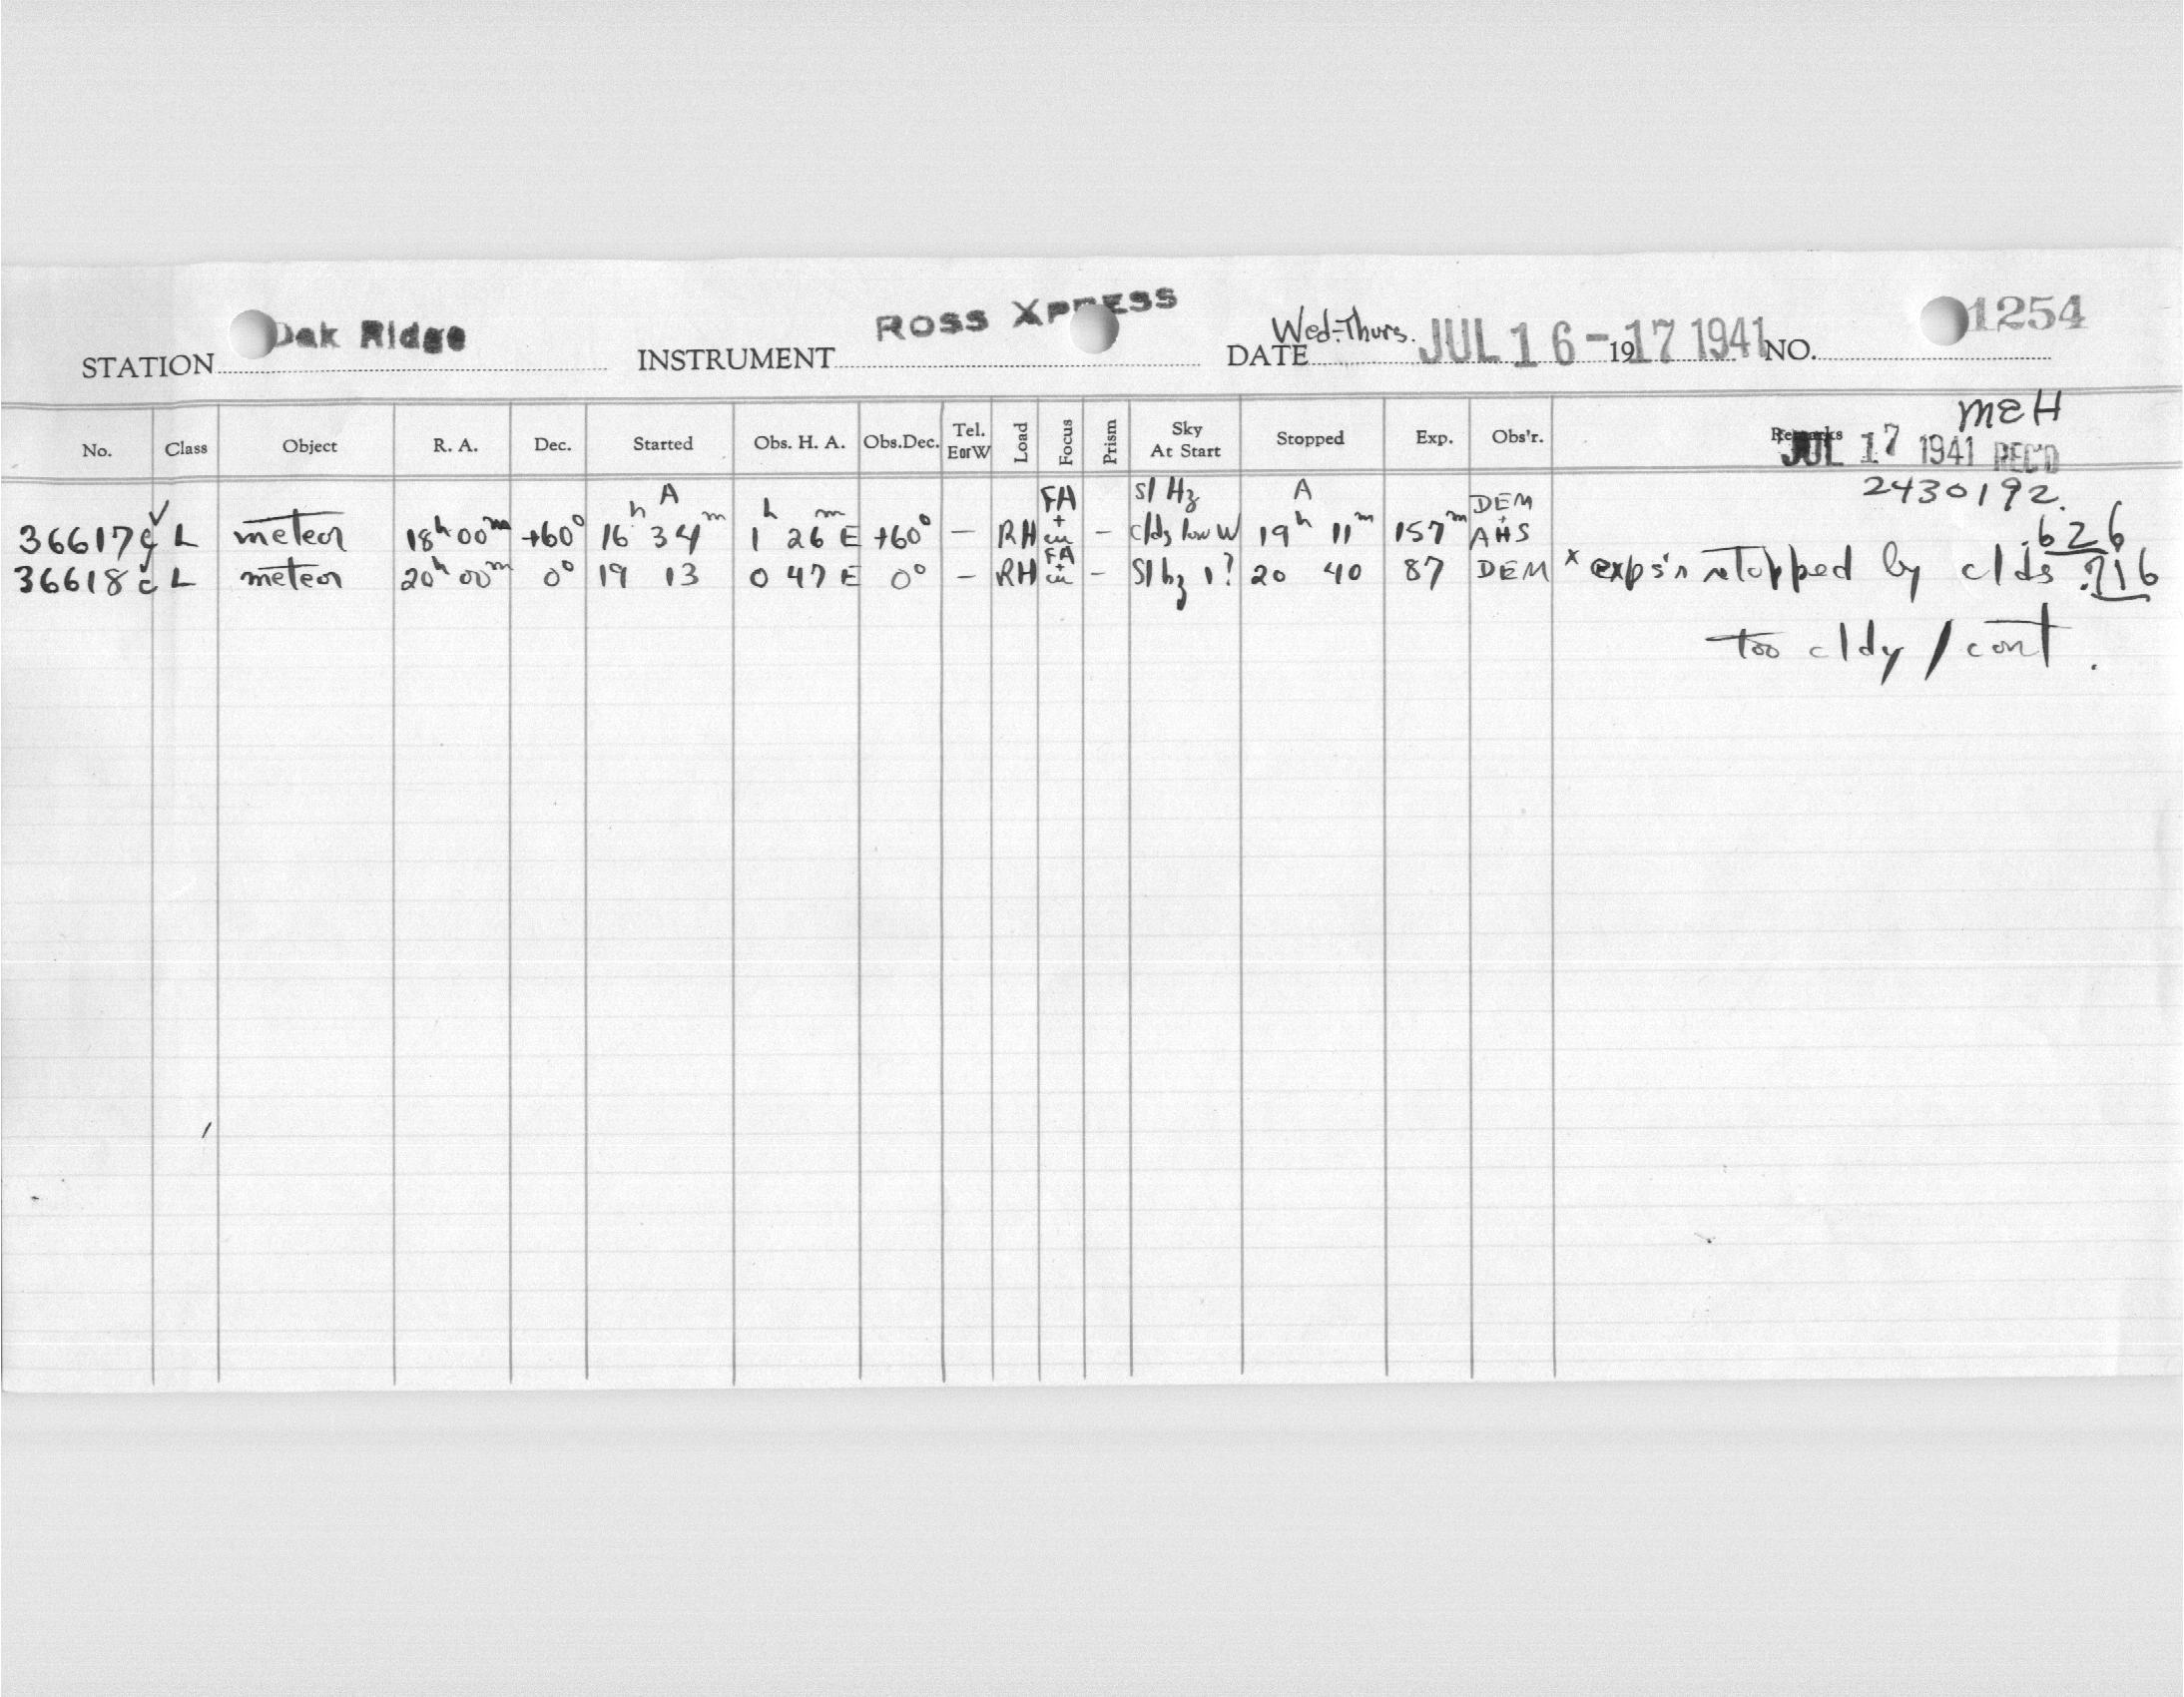 STATION Oak Ridge INSTRUMENT ROSS XPRESS DATE Wed.-Thurs. JUL 16 - 1917 1941 NO. 1254
MEH
No. Class Object R. A. Dec. Started Obs. H. A. Obs.Dec. Tel. EorW Load Focus Prism Sky At Start Stopped Exp. Obs'r. Remarks
JUL 17 1941 REC'D
2430192.
36617 c L meteor 18h 00m +60° 16h 34m A 1h 26m E +60° – RH FA + in – sl Hz clds low W 19h 11m A 157m DEM + AHS .626
36618 c L meteor 20h 00m 0° 19 13 0 47 E 0° – RH FA + in – Sl hz 1? 20 40 87 DEM × exps'n stopped by clds .716
too cldy / cont.